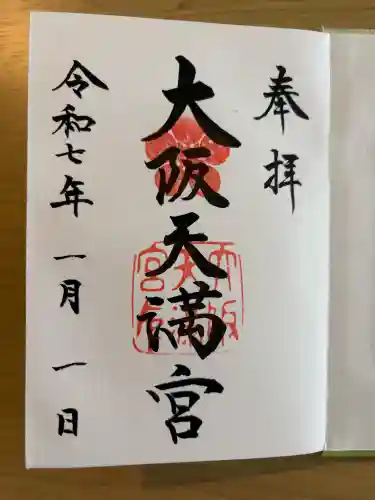 奉拝
大阪天満宮
令和七年一月一日